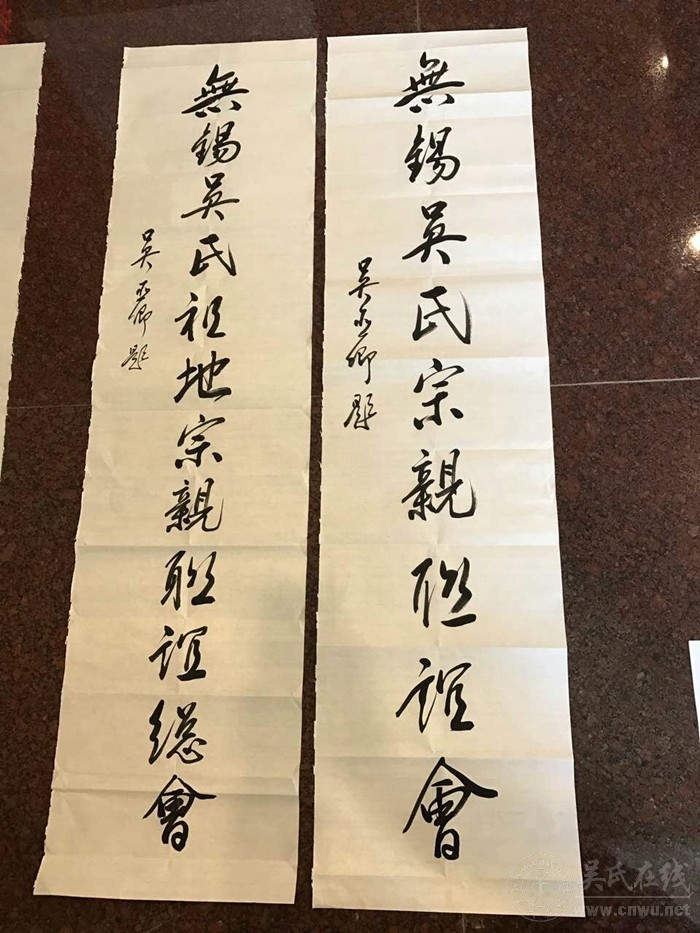 無錫吳氏宗親聯誼會
吳亦卿題
無錫吳氏祖地宗親聯誼總會
吳亦卿題
吴氏在线
www.cnwu.net